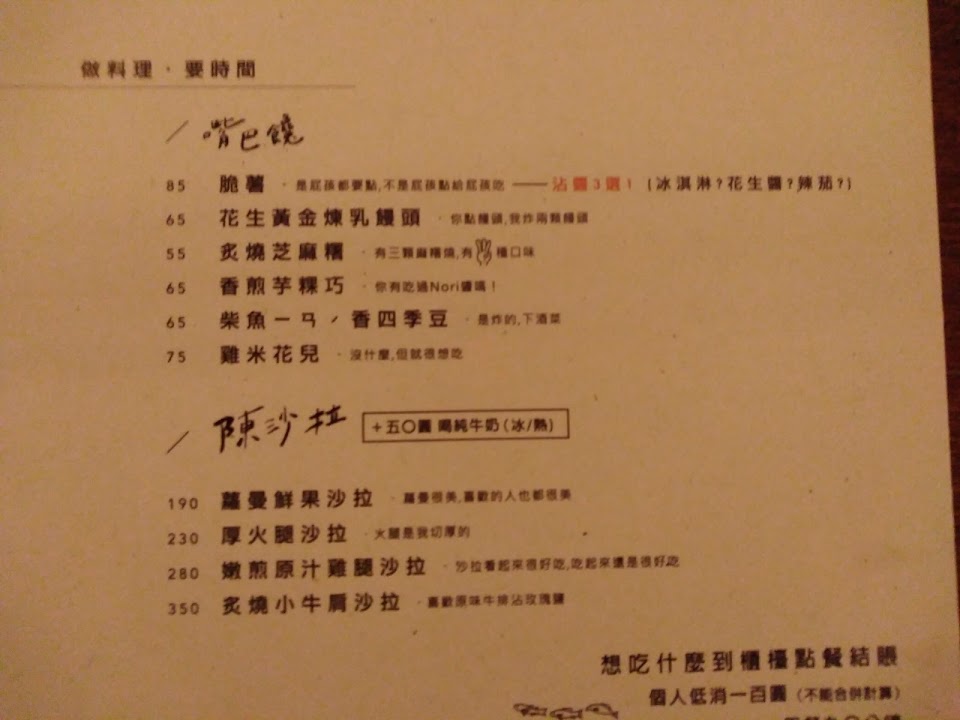 做料理・要時間
/ 嘴巴饞
85 脆薯 ・是屁孩都要點,不是屁孩點給屁孩吃 ——沾醬3選1 (冰淇淋?花生醬?辣茄?)
65 花生黃金煉乳饅頭 ・你點饅頭,我炸兩顆饅頭
55 炙燒芝麻糬 ・有三顆麻糬燒,有種口味
65 香煎芋粿巧 ・你有吃過Nori醬嗎!
65 柴魚ㄧㄢˊ香四季豆 ・是炸的,下酒菜
75 雞米花兒 ・沒什麼,但就很想吃
/ 陳沙拉 +五〇圓 喝純牛奶(冰/熱)
190 蘿曼鮮果沙拉 ・蘿曼很美,喜歡的人也都很美
230 厚火腿沙拉 ・火腿是我切厚的
280 嫩煎原汁雞腿沙拉 ・沙拉看起來很好吃,吃起來還是很好吃
350 炙燒小牛肩沙拉 ・喜歡原味牛排沾玫瑰鹽
想吃什麼到櫃檯點餐結賬
個人低消一百圓 (不能合併計算)